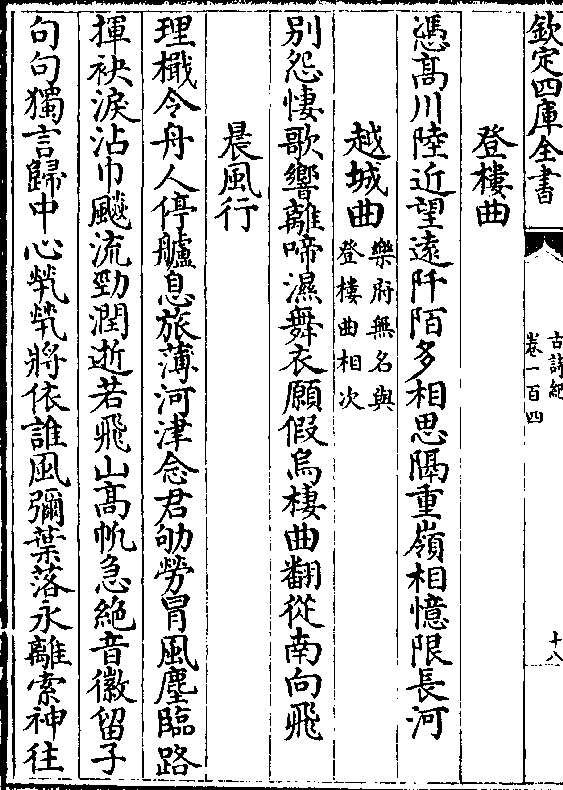 欽定四庫全書
古詩紀
卷一百四
十八
登樓曲
憑髙川陸近望遠阡陌多相思隔重嶺相憶限長河
越城曲
樂府無名與
登樓曲相次
别怨悽歌響離啼濕舞衣願假烏棲曲翻從南向飛
晨風行
理檝令舟人停艫息旅薄河津念君劬勞冒風塵臨路
揮袂淚沾巾飈流勁潤逝若飛山髙帆急絶音徽留子
句句獨言歸中心煢煢將依誰風彌葉落永離索神往